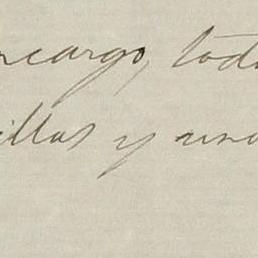 ncargo, tod
illas y una